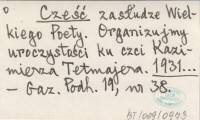 Cześć zasłudze Wiel-
kiego Poety. Organizujmy
uroczystości ku czci Kazi-
mierza Tetmajera. 1931...
– Gaz. Podh. 19, nr 38.
BT/009/0943